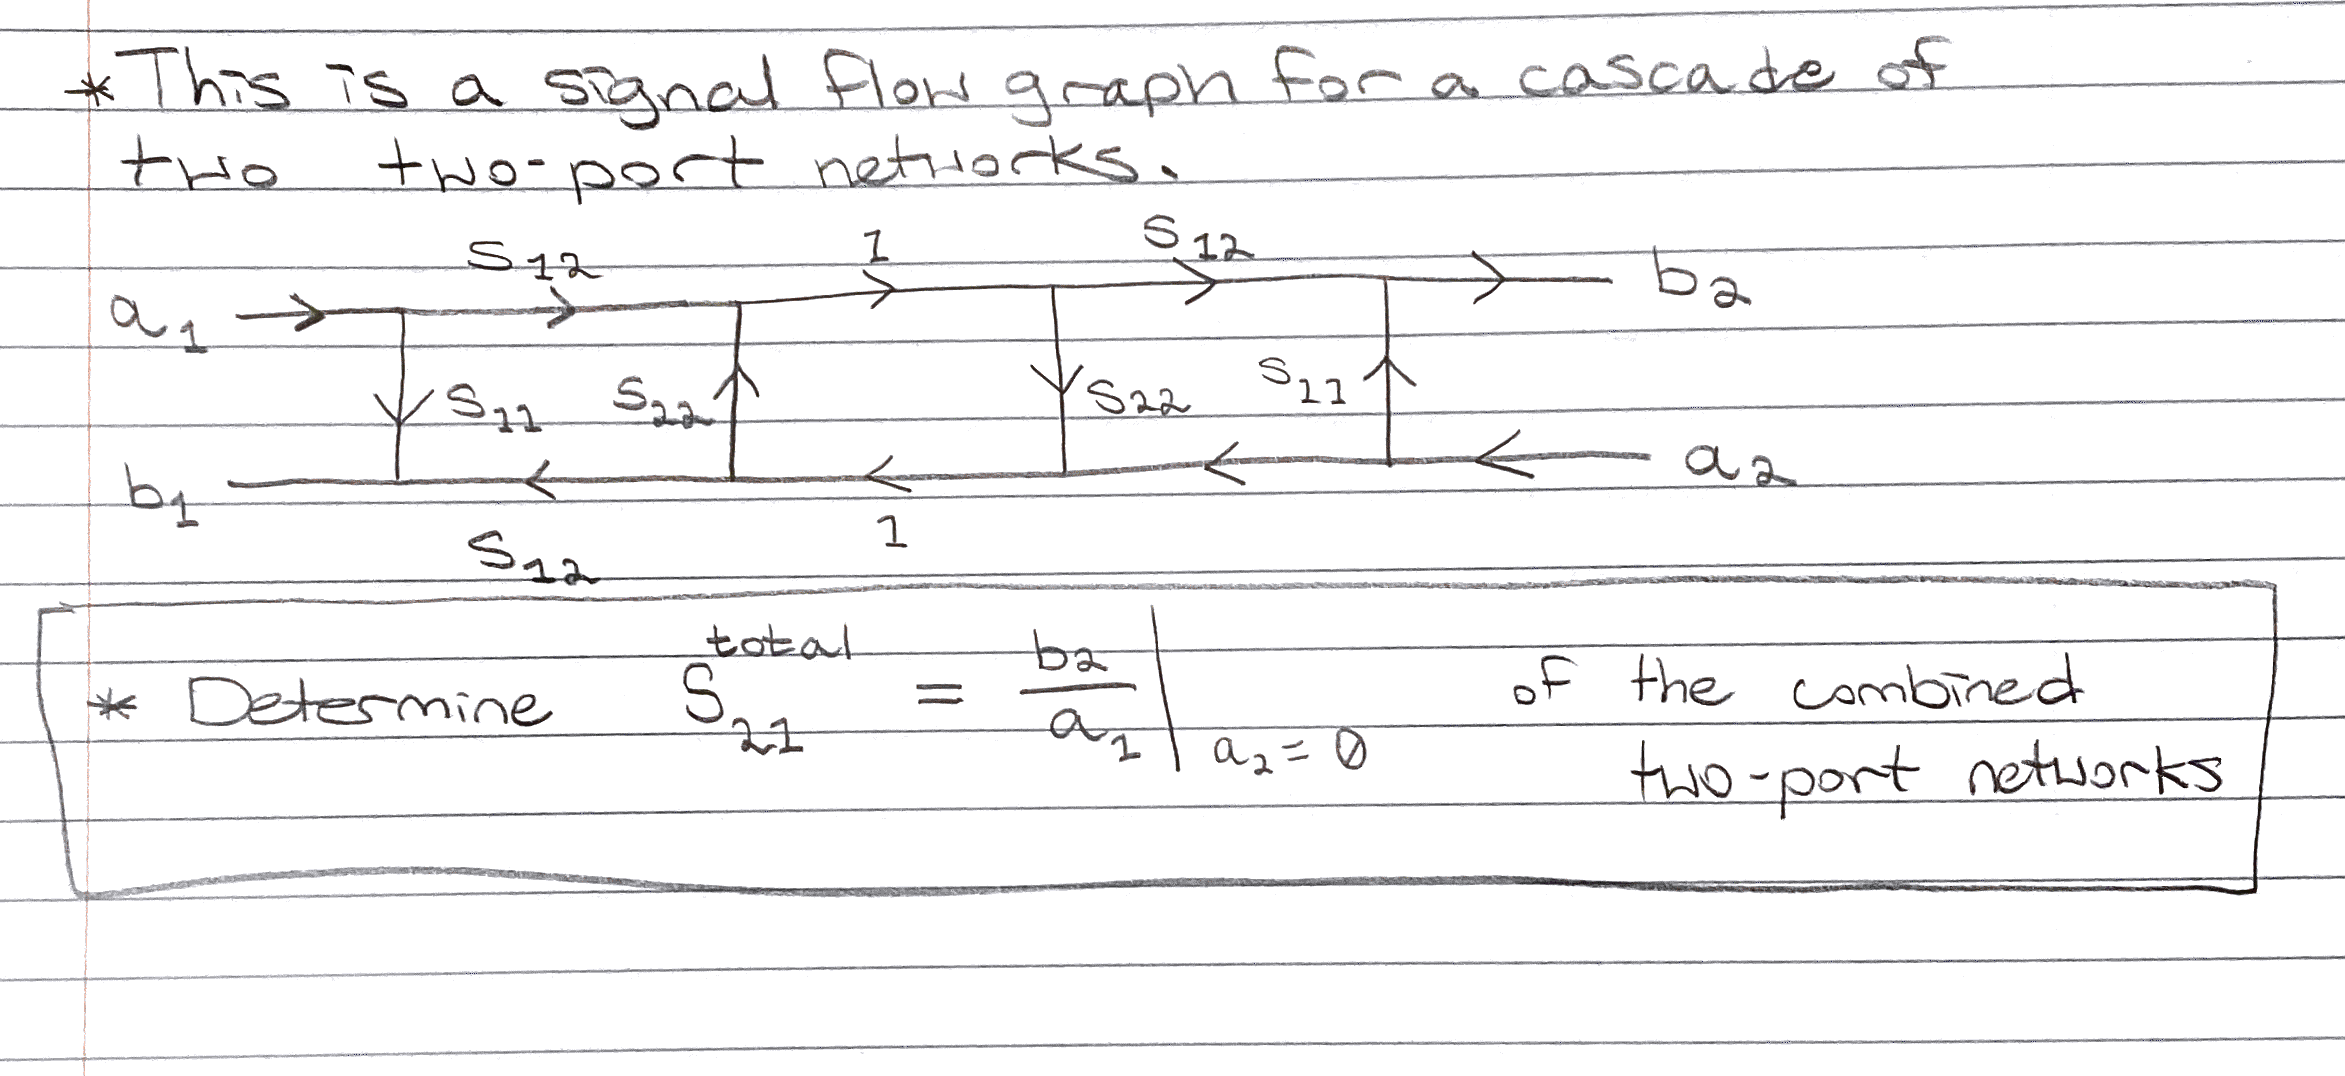 * This is a signal flow graph for a cascade of
two two-port networks.
S12 1 S12
a1 b2
S11 S22 S22 S11
b1 a2
S12 1
* Determine S21^total = b2/a1 | a2=0 of the combined
two-port networks